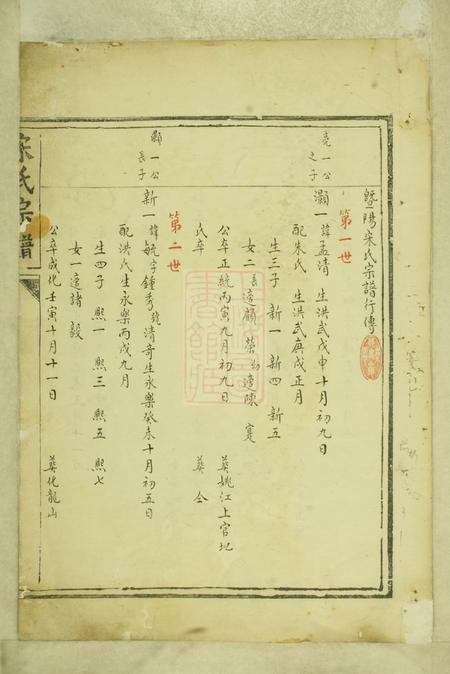 暨陽宋氏宗譜行傳
第一世
亮一公之子
灝一 諱孟清 生洪武戊申十月初九日
配朱氏 生洪武庚戌正月
生三子 新一 新四 新五
女二 長適顧榮 幼適陳寔
公卒正統丙寅九月初九日 葬姚江上官地
氏卒 葬仝
第二世
灝一公長子
新一 諱毓字鍾秀號清奇生永樂癸未十月初五日
配洪氏生永樂丙戌九月
生四子 熙一 熙三 熙五 熙七
女一適諸毅
公卒成化壬寅十月十一日 葬化龍山
宋氏宗譜